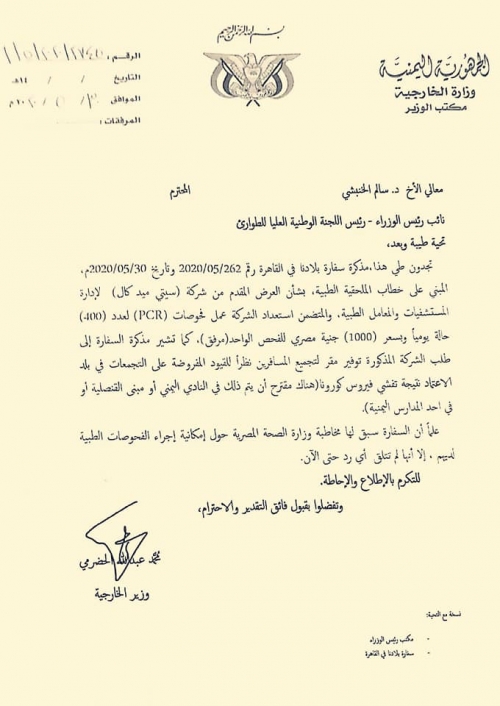 بسم الله الرحمن الرحيم
الجمهورية اليمنية
وزارة الخارجية
مكتب الوزير
الرقم:
التاريخ / /
الموافق
المرفقات:
معالي الأخ د. سالم الخنبشي المحترم
نائب رئيس الوزراء - رئيس اللجنة الوطنية العليا للطوارئ
تحية طيبة وبعد،
تجدون طي هذا، مذكرة سفارة بلادنا في القاهرة رقم 2020/05/262 وتاريخ 2020/05/30م،
المبني على خطاب الملحقية الطبية، بشأن العرض المقدم من شركة (سيتي ميد كال) لإدارة
المستشفيات والمعامل الطبية، والمتضمن استعداد الشركة عمل فحوصات (PCR) لعدد (400)
حالة يومياً وبسعر (1000) جنية مصري للفحص الواحد(مرفق)، كما تشير مذكرة السفارة إلى
طلب الشركة المذكورة توفير مقر لتجميع المسافرين نظراً للقيود المفروضة على التجمعات في بلد
الاعتماد نتيجة تفشي فيروس كورونا(هناك مقترح أن يتم ذلك في النادي اليمني أو مبنى القنصلية أو
في احد المدارس اليمنية).
علماً أن السفارة سبق لها مخاطبة وزارة الصحة المصرية حول إمكانية إجراء الفحوصات الطبية
لديهم . إلا أنها لم تتلق أي رد حتى الآن.
للتكرم بالإطلاع والإحاطة.
وتفضلوا بقبول فائق التقدير والاحترام،
محمد عبدالله الحضرمي
وزير الخارجية
نسخة مع التحية:
- مكتب رئيس الوزراء
- سفارة بلادنا في القاهرة